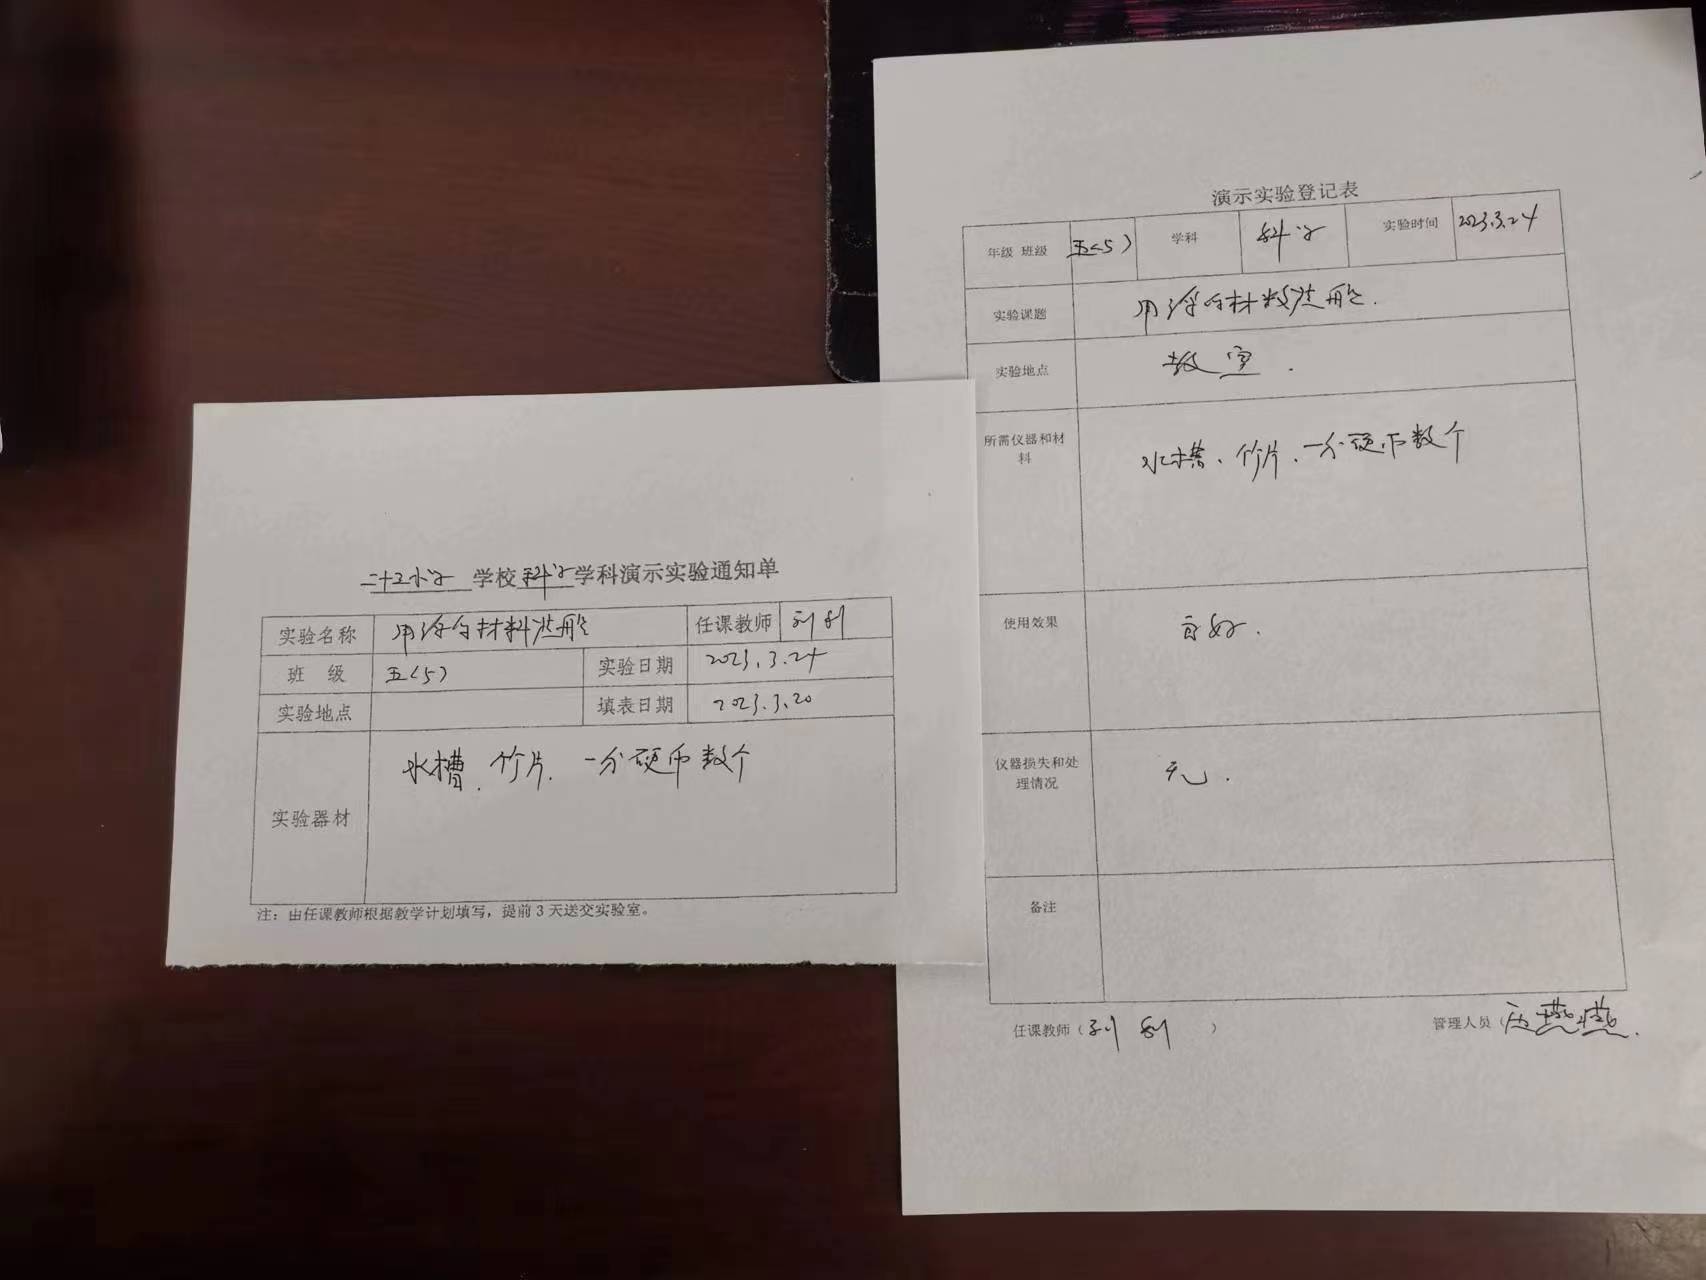 二十五小学 学校 科学 学科演示实验通知单
实验名称 用浮的材料造船 任课教师 刘利
班 级 五(5) 实验日期 2023.3.24
实验地点 填表日期 2023.3.20
实验器材 水槽、竹片、一分硬币数个
注：由任课教师根据教学计划填写，提前 3 天送交实验室。
演示实验登记表
年级 班级 五(5) 学科 科学 实验时间 2023.3.24
实验课题 用浮的材料造船.
实验地点 教室.
所需仪器和材
料
水槽、竹片、一分硬币数个
使用效果 良好.
仪器损失和处
理情况
无.
备注
任课教师（刘 利 ） 管理人员（ 燕燕.